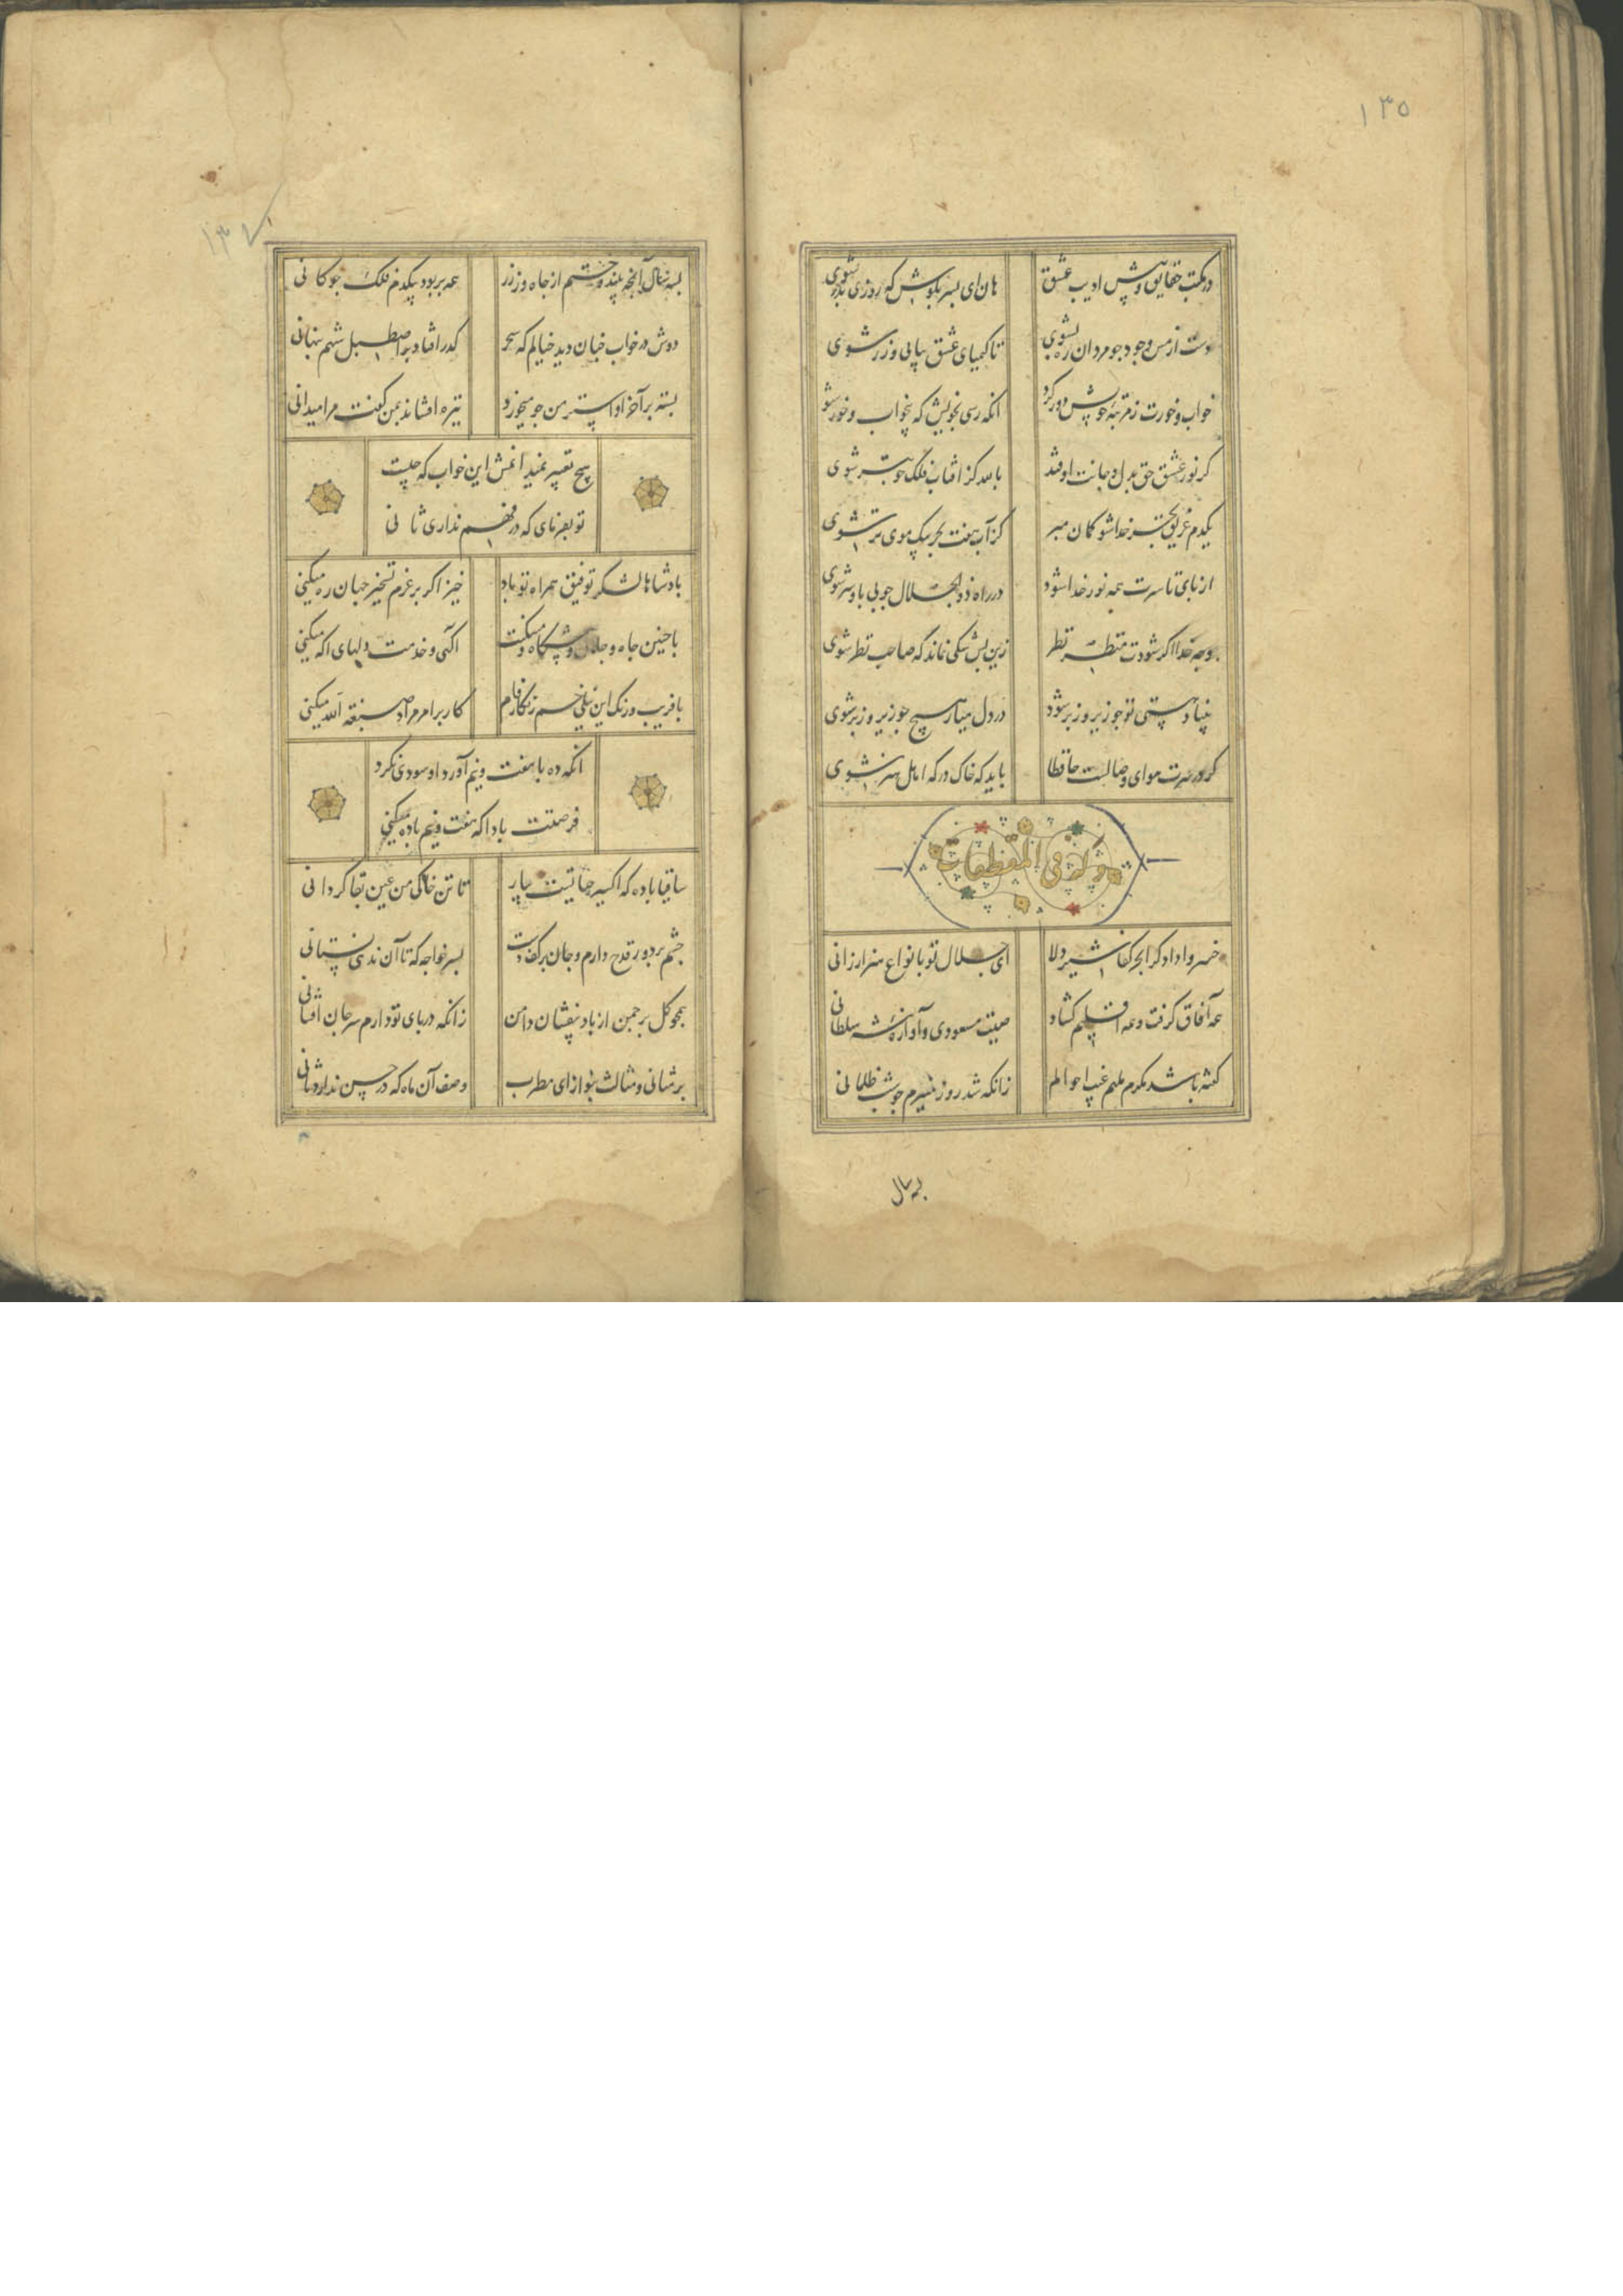 ۱۳۵
در مکتب حقایق و پیش ادیب عشق هان ای پسر بکوش که روزی پدر شوی
دست از مس وجود چو مردان ره بشوی تا کیمیای عشق بیابی و زر شوی
خواب و خورت ز مرتبه خویش دور کرد آنکه رسی بخویش که بیخواب و خور شوی
گر نور عشق حق بدل و جانت اوفتد بالله کز آفتاب فلک خوبتر شوی
یکدم غریق بحر خدا شو گمان مبر کز آب هفت بحر بیک موی تر شوی
از پای تا سرت همه نور خدا شود در راه ذوالجلال چو بی پا و سر شوی
وجه خدا اگر شودت منظر نظر زین پس شکی نماند که صاحب نظر شوی
بنیاد هستی تو چو زیر و زبر شود در دل میار هیچ چو زیر و زبر شوی
گر در سرت هوای وصالست حافظا باید که خاک درکه اهل هنر شوی
وله فی المقطعات
خسروا دادگرا بحر کفا شیر دلا ای جلال تو بانواع هنر ارزانی
همه آفاق گرفت و همه اقلیم گشاد صیت مسعودی و آوازه شه سلطانی
گفته باشد مکرم ملهم غیب احوالم زانکه شد روز منیرم چو شب ظلمانی
به سال
۱۳۷
بسه سال آنچه بیندوختم از جاه و زر همه بربود بیکدم فلک چوکانی
دوش در خواب چنان دید خیالم که سحر گذر افتاد بر اصطبل شهم پنهانی
بسته بر آخر او استر من جو میخورد تیزه افشاند بمن گفت مرا میدانی
هیچ تعبیر نمیدانمش این خواب که چیست
تو بفرمای که در فهم نداری ثانی
پادشاها لشکر توفیق همراه تو باد خیز اگر بر عزم تسخیر جهان ره میکنی
با چنین جاه و جلال و پیشکاه و مسکنت آگهی و خدمت دلهای آگه میکنی
با فریب و رنگ این نیلی خم زنگار فام کار بر امر مراد صبغة الله میکنی
آنکه ده با هفت و نیم آورد او سودی نکرد
فرصتت بادا که هفت و نیم با ده میکنی
ساقیا باده که اکسیر حیاتست بیار تا تن خاکی من عین بقا گردانی
چشم بر دور قدح دارم و جان بر کف دست بسر خواجه که تا آن ندهی نستانی
همچو گل بر چمن از باد بیفشان دامن زانکه در پای تو دارم سر جان افشانی
بر مثانی و مثالث بنواز ای مطرب وصف آن ماه که در حسن ندارد ثانی